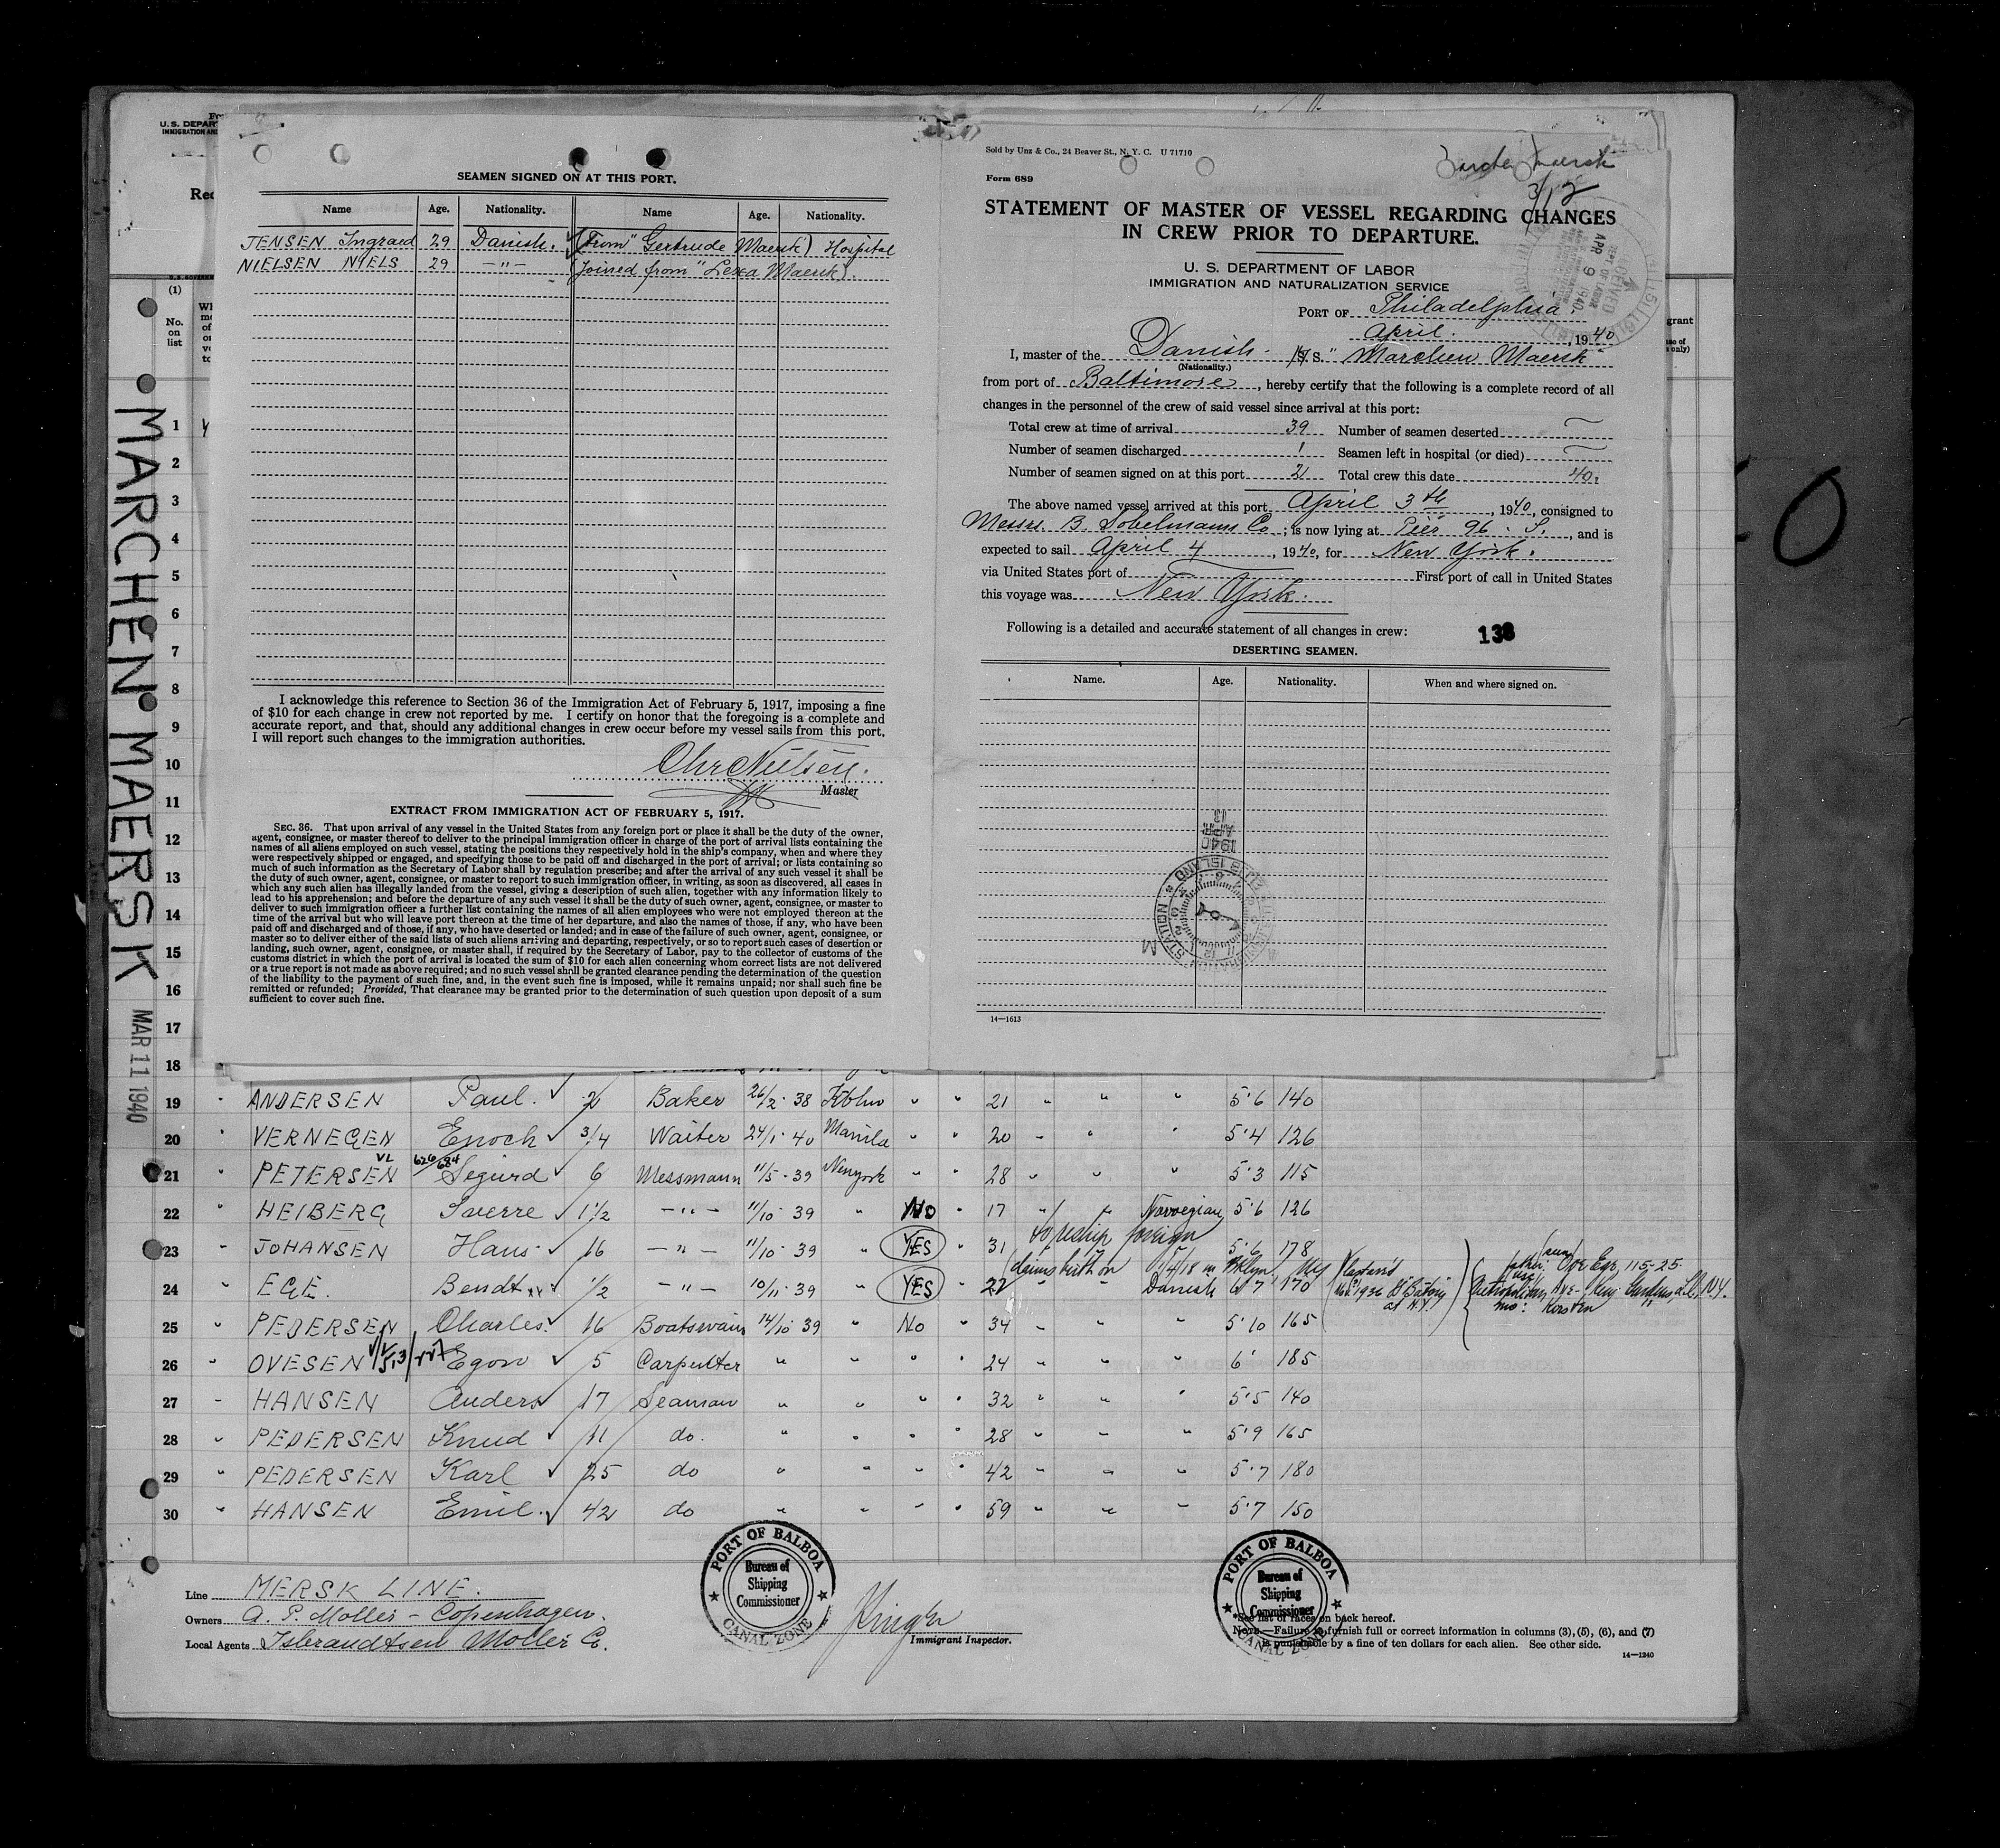 U. S. DEPAR
IMMIGRATION AN
SEAMEN SIGNED ON AT THIS PORT.
Name Age. Nationality. Name Age. Nationality.
JENSEN Ingvard 29 Danish. (From "Gertrude Maersk) Hospital
NIELSEN NIELS 29 —"— (Joined from "Lexa Maersk).
I acknowledge this reference to Section 36 of the Immigration Act of February 5, 1917, imposing a fine
of $10 for each change in crew not reported by me. I certify on honor that the foregoing is a complete and
accurate report, and that, should any additional changes in crew occur before my vessel sails from this port,
I will report such changes to the immigration authorities.
Chr Nielsen.
Master
EXTRACT FROM IMMIGRATION ACT OF FEBRUARY 5, 1917.
SEC. 36. That upon arrival of any vessel in the United States from any foreign port or place it shall be the duty of the owner,
agent, consignee, or master thereof to deliver to the principal immigration officer in charge of the port of arrival lists containing the
names of all aliens employed on such vessel, stating the positions they respectively hold in the ship's company, when and where they
were respectively shipped or engaged, and specifying those to be paid off and discharged in the port of arrival; or lists containing so
much of such information as the Secretary of Labor shall by regulation prescribe; and after the arrival of any such vessel it shall be
the duty of such owner, agent, consignee, or master to report to such immigration officer, in writing, as soon as discovered, all cases in
which any such alien has illegally landed from the vessel, giving a description of such alien, together with any information likely to
lead to his apprehension; and before the departure of any such vessel it shall be the duty of such owner, agent, consignee, or master to
deliver to such immigration officer a further list containing the names of all alien employees who were not employed thereon at the
time of the arrival but who will leave port thereon at the time of her departure, and also the names of those, if any, who have been
paid off and discharged and of those, if any, who have deserted or landed; and in case of the failure of such owner, agent, consignee, or
master so to deliver either of the said lists of such aliens arriving and departing, respectively, or so to report such cases of desertion or
landing, such owner, agent, consignee, or master shall, if required by the Secretary of Labor, pay to the collector of customs of the
customs district in which the port of arrival is located the sum of $10 for each alien concerning whom correct lists are not delivered
or a true report is not made as above required; and no such vessel shall be granted clearance pending the determination of the question
of the liability to the payment of such fine, and, in the event such fine is imposed, while it remains unpaid; nor shall such fine be
remitted or refunded; Provided, That clearance may be granted prior to the determination of such question upon deposit of a sum
sufficient to cover such fine.
Sold by Unz & Co., 24 Beaver St., N. Y. C. U 71710
Form 689
Maersk
3/12
STATEMENT OF MASTER OF VESSEL REGARDING CHANGES
IN CREW PRIOR TO DEPARTURE.
U. S. DEPARTMENT OF LABOR
IMMIGRATION AND NATURALIZATION SERVICE
RECEIVED
APR 9 1940
PORT OF Philadelphia.
April. , 1940
I, master of the Danish. S. "Marchen Maersk"
(Nationality.)
from port of Baltimore , hereby certify that the following is a complete record of all
changes in the personnel of the crew of said vessel since arrival at this port:
Total crew at time of arrival 39 Number of seamen deserted —
Number of seamen discharged 1 Seamen left in hospital (or died) —
Number of seamen signed on at this port 2 Total crew this date 40.
The above named vessel arrived at this port April 3th , 1940, consigned to
Messrs. B. Sobelmanns Co ; is now lying at Pier 96. S. , and is
expected to sail April 4 , 1940, for New York.
via United States port of — First port of call in United States
this voyage was New York.
Following is a detailed and accurate statement of all changes in crew: 138
DESERTING SEAMEN.
Name. Age. Nationality. When and where signed on.
1940
APR
13
14—1613
MARCHEN MAERSK
MAR 11 1940
(1)
No.
on
list
1
2
3
4
5
6
7
8
9
10
11
12
13
14
15
16
17
18
19 " ANDERSEN Paul. 2 Baker 26/2-38 Kbhn " " 21 " " " 5'6 140
20 " VERNEGEN Enoch 3/4 Waiter 24/1-40 Manila " " 20 " " " 5'4 126
21 " PETERSEN Sigurd 6 Messmann 11/5-39 Newyork " " 28 " " " 5'3 115
22 " HEIBERG Sverre 1 1/2 —"— 11/10-39 " No " 17 " " Norwegian 5'6 126
23 " JOHANSEN Hans 16 —"— 11/10-39 " YES " 31 to reship foreign 5'6 178
24 " EGE. Bendt 1/2 —"— 10/11-39 " YES 22 " " Danish 6'7 170
claims birth on
25 " PEDERSEN Charles 16 Boatswain 14/10 39 " No " 34 " " " 5'10 165
26 " OVESEN Egon 5 Carpenter " " " " 24 " " " 6' 185
27 " HANSEN Anders 17 Seaman " " " " 32 " " " 5'5 140
28 " PEDERSEN Knud 11 do. " " " " 28 " " " 5'9 165
29 " PEDERSEN Karl 25 do " " " " 42 " " " 5'7 180
30 " HANSEN Emil. 42 do " " " " 59 " " " 5'7 150
Line MERSK LINE.
Owners A. P. Moller - Copenhagen.
Local Agents Isbrandtsen Moller Co.
PORT OF BALBOA
Bureau of
Shipping
Commissioner
CANAL ZONE
Immigrant Inspector.
PORT OF BALBOA
Bureau of
Shipping
Commissioner
CANAL ZONE
*See list of races on back hereof.
NOTE.—Failure to furnish full or correct information in columns (3), (5), (6), and (7)
is punishable by a fine of ten dollars for each alien. See other side.
14—1240